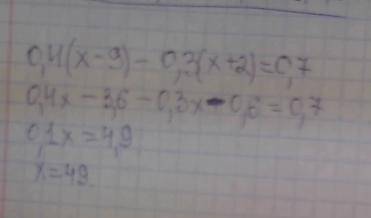 0,4(x-9) - 0,3(x+2)=0,7
0,4x - 3,6 - 0,3x - 0,6 = 0,7
0,1x = 4,9
x=49